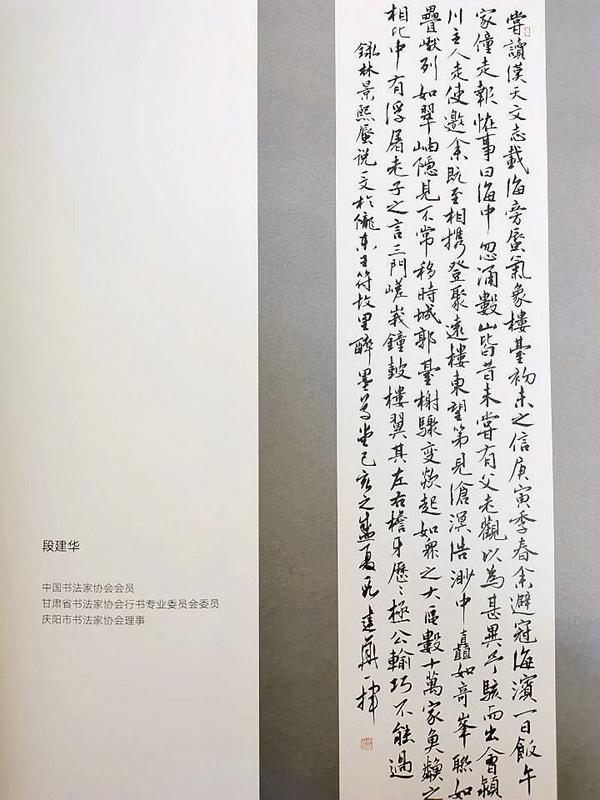 嘗讀漢天文志載海旁蜃氣象樓臺初未之信庚寅季春余避寇海濱一日飯午
家僮走報怪事曰海中忽涌數山皆昔未嘗有父老觀以為甚異予駭而出會潁
川主人走使邀余既至相攜登聚遠樓東望第見滄溟浩渺中矗如奇峯聯如
疊巘列如翠岫隱見不常移時城郭臺榭驟變欻起如眾之大區數十萬家魚鱗之
相比中有浮屠老子之言三門嵯峩鐘鼓樓翼其左右檐牙歷〻極公輸巧不能過
錄林景熙蜃说一文於隴東王符故里醉墨堂己亥之盛夏建華一揮
段建华
中国书法家协会会员
甘肃省书法家协会行书专业委员会委员
庆阳市书法家协会理事